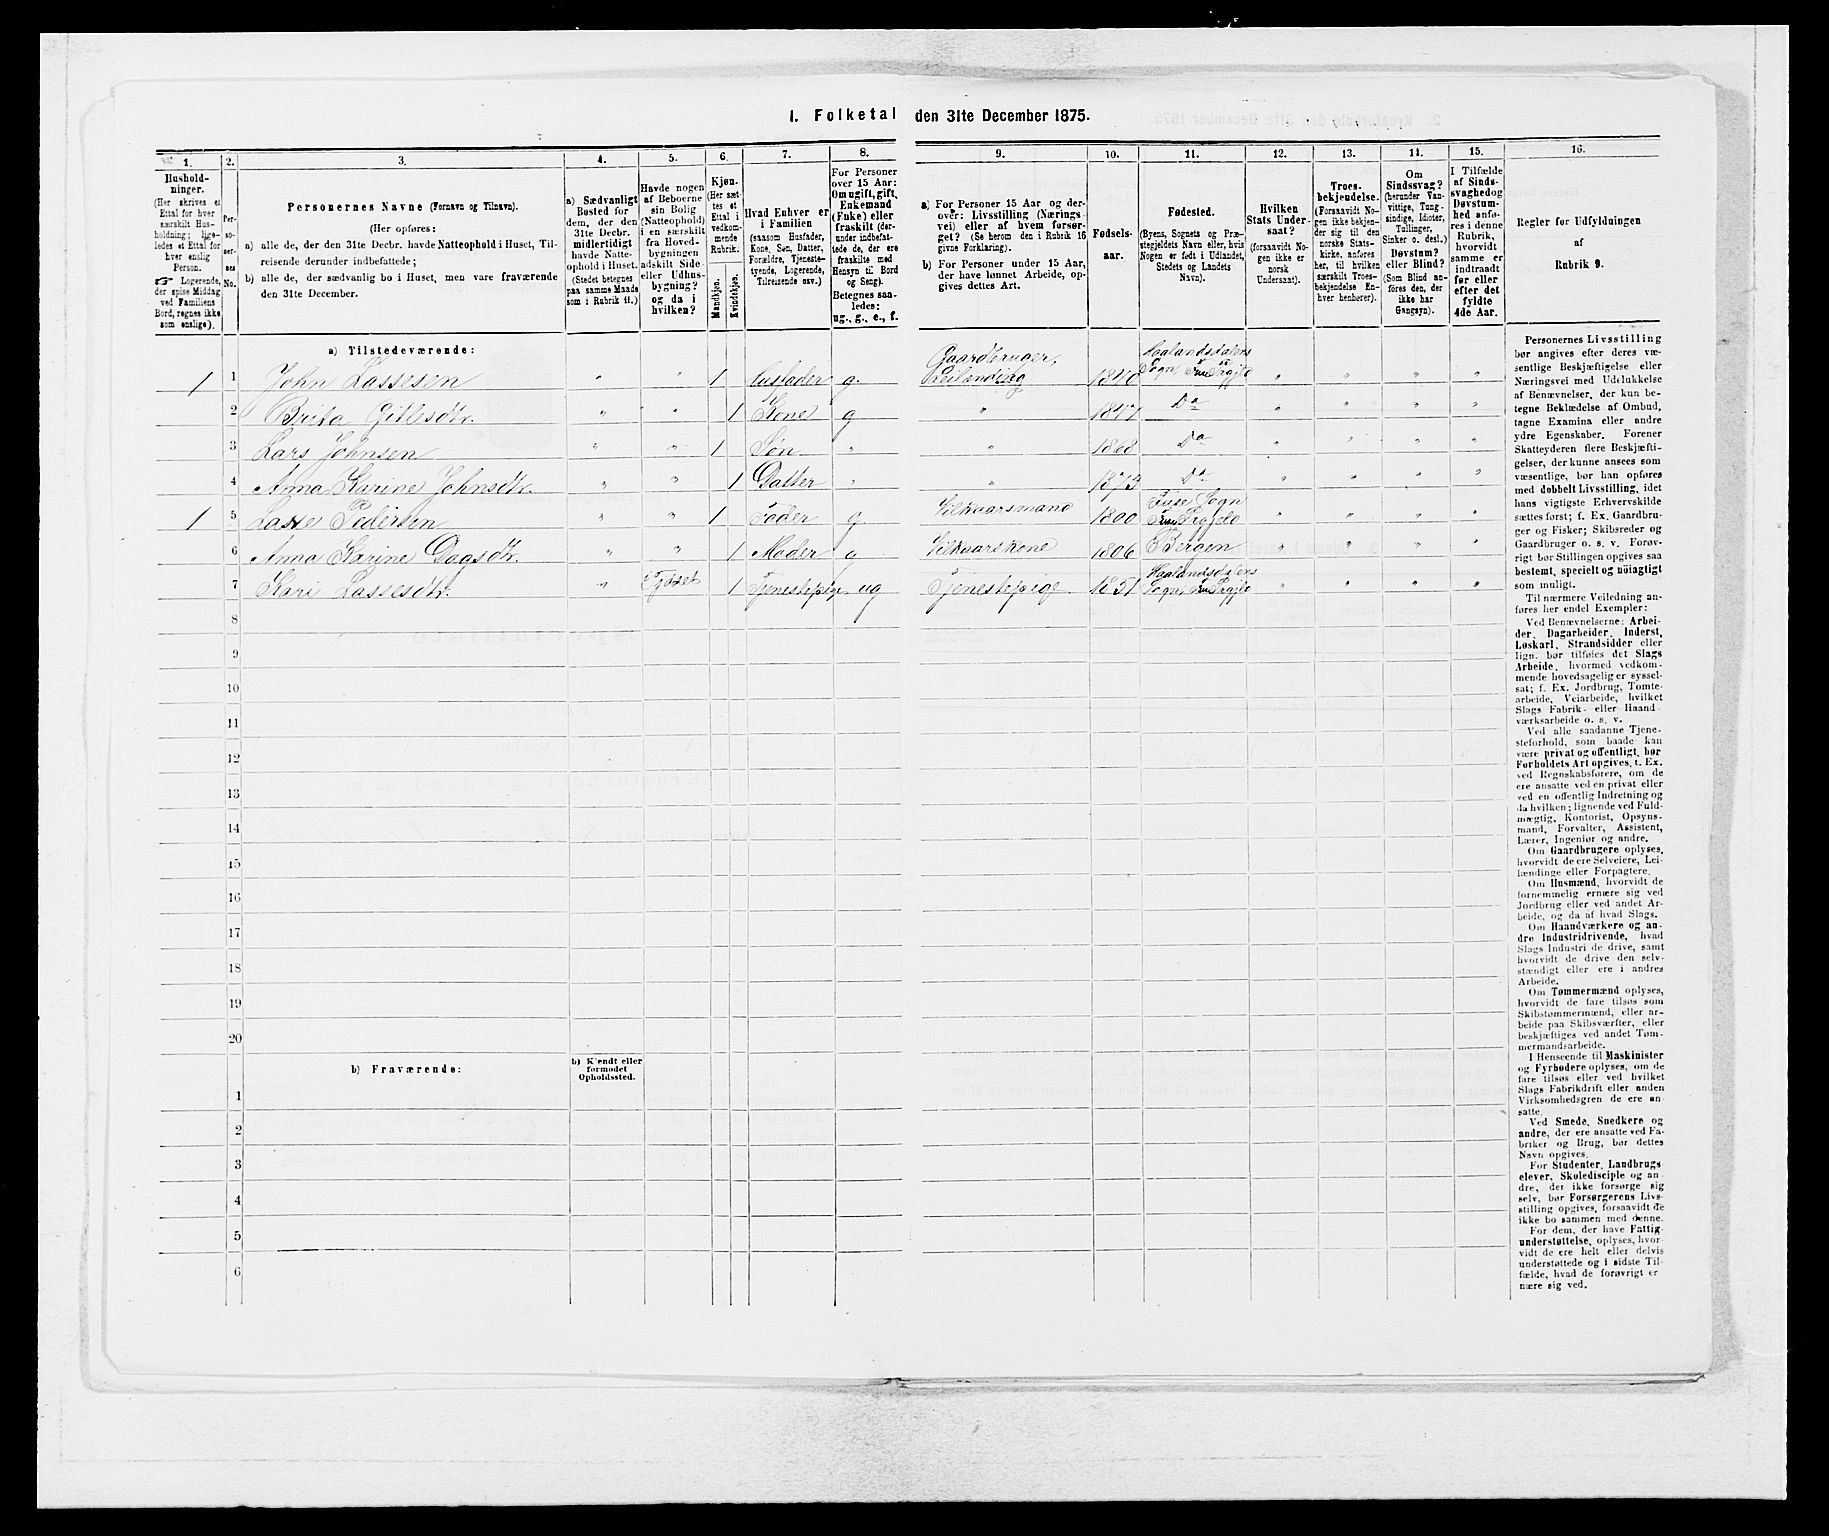 1. Folketal den 31te December 1875.
1. 2. 3. 4. 5. 6. 7. 8. 9. 10. 11. 12. 13. 14. 15. 16.
Hushold-
ninger.
(Her skrives et
Ettal for hver
særskilt Hus-
holdning; lige-
ledes et Ettal for
hver enslig
Person.
☞ Logerende,
der spise Middag
ved Familiens
Bord, regnes ikke
som enslige).
Per-
so-
ner-
nes
No.
Personernes Navne (Fornavn og Tilnavn).
(Her opføres:
a) alle de, der den 31te Decbr. havde Natteophold i Huset, Til-
reisende derunder indbefattede;
b) alle de, der sædvanlig bo i Huset, men vare fraværende
den 31te December.
a) Sædvanligt
Bosted for
dem, der den
31te Decbr.
midlertidigt
havde Natte-
ophold i Huset.
(Stedet betegnes
paa samme Maade
som i Rubrik 11.)
Havde nogen
af Beboerne
sin Bolig
(Natteophold)
i en særskilt
fra Hoved-
bygningen
adskilt Side-
eller Udhus-
bygning?
og da i
hvilken?
Kjøn.
(Her sæt-
tes et
Ettal i
vedkom-
mende
Rubrik.
Mandkjøn.
Kvindekjøn.
Hvad Enhver er
i Familien
(saasom Husfader,
Kone, Søn, Datter,
Forældre, Tjeneste-
tyende, Logerende,
Tilreisende osv.)
For Personer
over 15 Aar:
Om ugift, gift,
Enkemand
(Enke) eller
fraskilt (der-
under indbefat-
tede de, der ere
fraskilte med
Hensyn til Bord
og Seng).
Betegnes saa-
ledes:
ug., g., e., f.
a) For Personer 15 Aar og der-
over: Livsstilling (Nærings-
vei) eller af hvem forsør-
get? (Se herom den i Rubrik 16
givne Forklaring).
b) For Personer under 15 Aar,
der have lønnet Arbeide, op-
gives dettes Art.
Fødsels-
aar.
Fødested.
(Byens, Sognets og Præ-
stegjeldets Navn eller, hvis
Nogen er født i Udlandet,
Stedets og Landets
Navn).
Hvilken
Stats Under-
saat?
(forsaavidt No-
gen ikke er
norsk
Undersaat).
Troes-
bekjendelse.
(Forsaavidt No-
gen ikke bekjen-
der sig til den
norske Stats-
kirke, anføres
her, til hvilken
særskilt Troes-
bekjendelse En-
hver henhører).
Om
Sindssvag?
(herunder Van-
vittige, Tung-
sindige, Idioter,
Tullinger,
Sinker o. desl.)
Døvstum?
eller Blind?
(Som Blind an-
føres den, der
ikke har
Gangsyn).
I Tilfælde
af Sinds-
svaghed og
Døvstum-
hed anfø-
res i denne
Rubrik,
hvorvidt
samme er
indtraadt
før eller
efter det
fyldte
4de Aar.
Regler for Udfyldningen
af
Rubrik 9.
a) Tilstedeværende:
1 1 John Lassesen " " 1 Husfader g. Gaardbruger, Leilænding 1840 Haalandsdalens Sogn, Fuse Prgjld " " " "
2 Brita Gitlesdtr. " " 1 Kone g " 1847 Do " " " "
3 Lars Johnsen " " 1 Søn " " 1868 Do " " " "
4 Anna Karine Johnsdtr. " " 1 Datter " " 1873 Do " " " "
1 5 Lasse Pedersen " " 1 Fader g. Vilkaarsmand 1800 Fuse Sogn Fuse Prgjeld " " " "
6 Anna Karine Dagsdtr. " " 1 Moder g Vilkaarskone 1806 Bergen " " " "
7 Kari Lassesdtr. " i Fjøset 1 Tjenestepige ug Tjenestepige 1851 Haalandsdalens Sogn, Fuse Prgjld " " " "
8
9
10
11
12
13
14
15
16
17
18
19
20
b) Fraværende:
b) Kjendt eller
formodet
Opholdssted.
1
2
3
4
5
6
Personernes Livsstilling
bør angives efter deres væ-
sentlige Beskjæftigelse eller
Næringsvei med Udelukkelse
af Benævnelser, der kun be-
tegne Beklædelse af Ombud,
tagne Examina eller andre
ydre Egenskaber. Forener
Skatteyderen flere Beskjæfti-
gelser, der kunne ansees som
væsentlige, bør han opføres
med dobbelt Livsstilling, idet
hans vigtigste Erhvervskilde
sættes først; f. Ex. Gaardbru-
ger og Fisker; Skibsreder og
Gaardbruger o. s. v. Forøv-
rigt bør Stillingen opgives saa
bestemt, specielt og nöiagtigt
som muligt.
Til nærmere Veiledning an-
føres her endel Exempler:
Ved Benævnelserne: Arbei-
der, Dagarbeider, Inderst,
Løskarl, Strandsidder eller
lign. bør tilføies det Slags
Arbeide, hvormed vedkom-
mende hovedsagelig er syssel-
sat; f. Ex. Jordbrug, Tømte-
arbeide, Veiarbeide, hvilket
Slags Fabrik- eller Haand-
værksarbeide o. s. v.
Ved alle saadanne Tjene-
steforhold, som baade kan
være privat og offentligt, bør
Forholdets Art opgives, t. Ex.
ved Regnskabsførere, om de
ere ansatte ved en privat eller
ved en offentlig Indretning og
da hvilken; lignende ved Fuld-
mægtig, Kontorist, Opsyns-
mand, Forvalter, Assistent,
Lærer, Ingeniør og andre.
Om Gaardbrugere oplyses,
hvorvidt de ere Selveiere, Lei-
lændinge eller Forpagtere.
Om Husmænd, hvorvidt de
fornemmelig ernære sig ved
Jordbrug eller ved andet Ar-
beide, og da af hvad Slags.
Om Haandværkere og an-
dre Industridrivende, hvad
Slags Industri de drive, samt
hvorvidt de drive den selv-
stændigt eller ere i andres
Arbeide.
Om Tømmermænd oplyses,
hvorvidt de fare tilsøs som
Skibstømmermænd, eller ar-
beide paa Skibsværfter, eller
beskjæftiges ved andet Tøm-
mermandsarbeide.
I Henseende til Maskinister
og Fyrbødere oplyses, om de
fare tilsøs eller ved hvilket
Slags Fabrikdrift eller anden
Virksomhedsgren de ere an-
satte.
Ved Smede, Snedkere og
andre, der ere ansatte ved Fa-
briker og Brug, bør dettes
Navn opgives.
For Studenter, Landbrugs-
elever, Skoledisciple og an-
dre, der ikke forsørge sig
selv, bør Forsørgerens Livs-
stilling opgives, forsaavidt de
ikke bo sammen med denne.
For dem, der have Fattig-
understøttelse, oplyses, hvor-
vidt de ere helt eller delvis
understøttede og i sidste Til-
fælde, hvad de forøvrigt er-
nære sig ved.